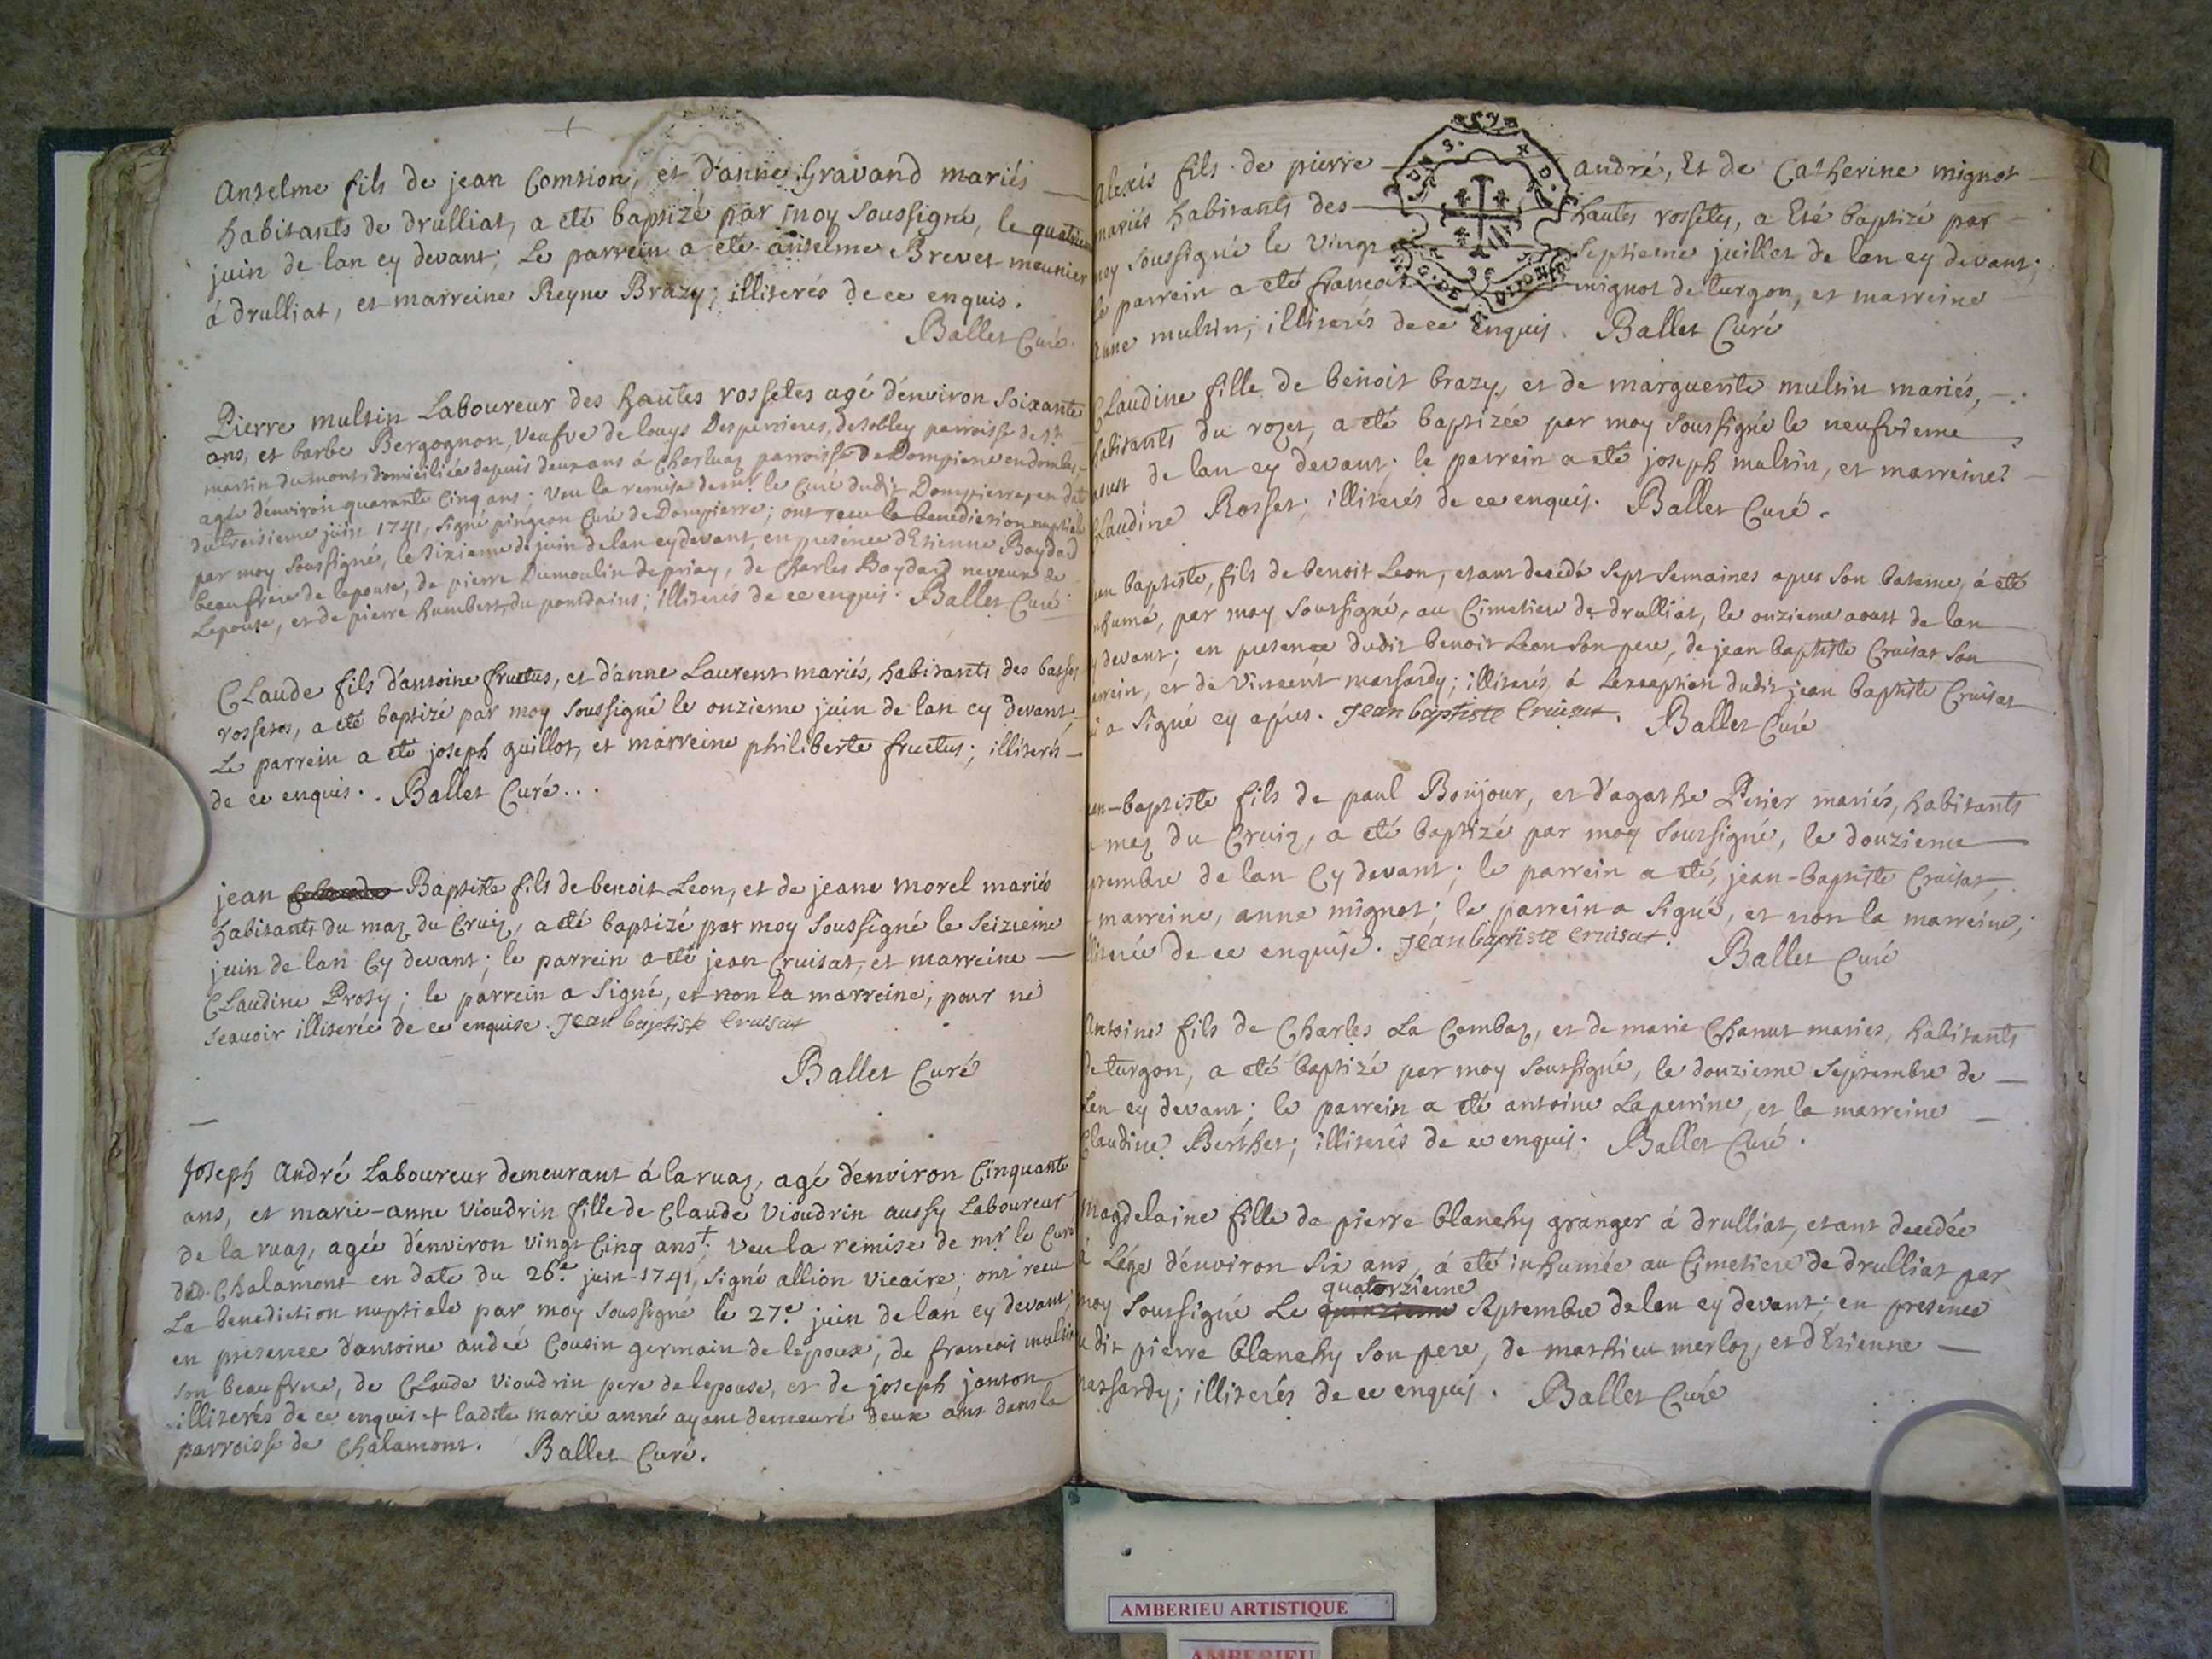 Anselme fils de jean Comtion, et d'anne Gravand mariés
habitants de drulliat, a eté baptizé par moy soussigné, le quatrieme
juin de lan cy devant; Le parrein a eté anselme Brevet meunier
á drulliat, et marreine Reyne Brazy; illiterés de ce enquis.
Ballet Curé.
Pierre multin Laboureur des hautes rossetes agé d'environ soixante
ans, et barbe Bergognon, veufve de louys Desperrieres, de tolley parroisse de st
martin du mont, domiciliée depuis deux ans á Charluaz parroisse de Dompierre en dombes,
agée d'environ quarante Cinq ans; Veu la remise de mr. le Curé dudit Dompierre, en date
du troisieme juin 1741, signé pingeon Curé de Dompierre; ont receu la benediction nuptiale
par moy soussigné, le sixieme de juin de lan cy devant, en presence d'Etienne Boydard
beaufrere de lepouse, de pierre Dumoulin de priay, de Charles Boydard neveux de
Lepouse, et de pierre humbert du pont dains; illiterés de ce enquis. Ballet Curé
CLaude fils d'antoine fructus, et d'anne Laurent mariés, habitants des basses
rossetes, a eté baptizé par moy soussigné le onzieme juin de lan cy devant,
Le parrein a eté joseph guillot, et marreine philiberte fructus; illiterés
de ce enquis. . Ballet Curé...
jean Baptiste fils de benoit Leon, et de jeane morel mariés
habitants du maz du Cruiz, a eté baptizé par moy soussigné le seizieme
juin de lan cy devant; le parrein a eté jean Cruisat, et marreine
CLaudine Prosy; le parrein a signé, et non la marreine, pour ne
scavoir illiterée de ce enquise. Jean baptiste Cruisat
Ballet Curé
Joseph André Laboureur demeurant á la ruaz, agé d'environ Cinquante
ans, et marie-anne vioudrin fille de Claude vioudrin aussy Laboureur
de la ruaz, agée d'environ vingt Cinq ans+. Veu la remise de mr le Curé
dud. Chalamont en date du 26e. juin 1741, signé allion vicaire; ont receu
La benediction nuptiale par moy soussigné le 27e. juin de lan cy devant,
en presence d'antoine andré Cousin germain de lepoux, de francois multin
son beaufrere, de CLaude vioudrin pere de lepouse, et de joseph janton
illiterés de ce enquis + ladite marie anne ayant demeuré deux ans dans la
parroisse de Chalamont. Ballet Curé.
Alexis fils de pierre andré, Et de Catherine mignot
mariés habitants des hautes rossetes, a Eté baptizé par
moy soussigné le vingt septieme juillet de lan cy devant;
le parrein a eté francois mignot de turgon, et marreine
anne multin; illiterés de ce Enquis. Ballet Curé
CLaudine fille de benoit brazy, et de marguerite multin mariés,
habitants du rozet, a eté baptizée par moy soussigné le neufvieme
aoust de lan cy devant; le parrein a eté joseph multin, et marreine
CLaudine Rosset; illiterés de ce enquis. Ballet Curé.
jean baptiste, fils de benoit Leon, etant decedé sept semaines apres son bateme, á eté
inhumé, par moy soussigné, au Cimetiere de drulliat, le onzieme aoust de lan
cy devant; en presence dudit benoit Leon son pere, de jean baptiste Cruisat son
parrein, et de Vincent massardy; illiterés, á Lexception dudit jean baptiste Cruisat
qui a signé cy apres. Jean baptiste Cruisat. Ballet Curé
jean-baptiste fils de paul Bonjour, et d'agathe Perier mariés, habitants
maz du Cruiz, a eté baptizé par moy soussigné, le douzieme
septembre de lan cy devant; le parrein a eté, jean-baptiste Cruisat,
marreine, anne mignot; le parrein a signé, et non la marreine,
illiterée de ce enquise. Jean baptiste Cruisat. Ballet Curé
Antoine fils de Charles La Combaz, et de marie Chanut mariés, habitants
de turgon, a eté baptizé par moy soussigné, le douzieme septembre de
Lan cy devant; le parrein a eté antoine Laperrine, et la marreine
Claudine Berthet; illiterés de ce enquis. Ballet Curé.
Magdelaine fille de pierre blanchy granger á drulliat, etant decedée
á Lége d'environ six ans, á eté inhumée au Cimetiere de drulliat par
quatorzieme
moy soussigné Le quinzieme septembre de lan cy devant; en presence
du dit pierre blanchy son pere, de mathieu merloz, et d'Etienne
massardy; illiterés de ce enquis. Ballet Curé
AMBERIEU ARTISTIQUE
AMBERIEU